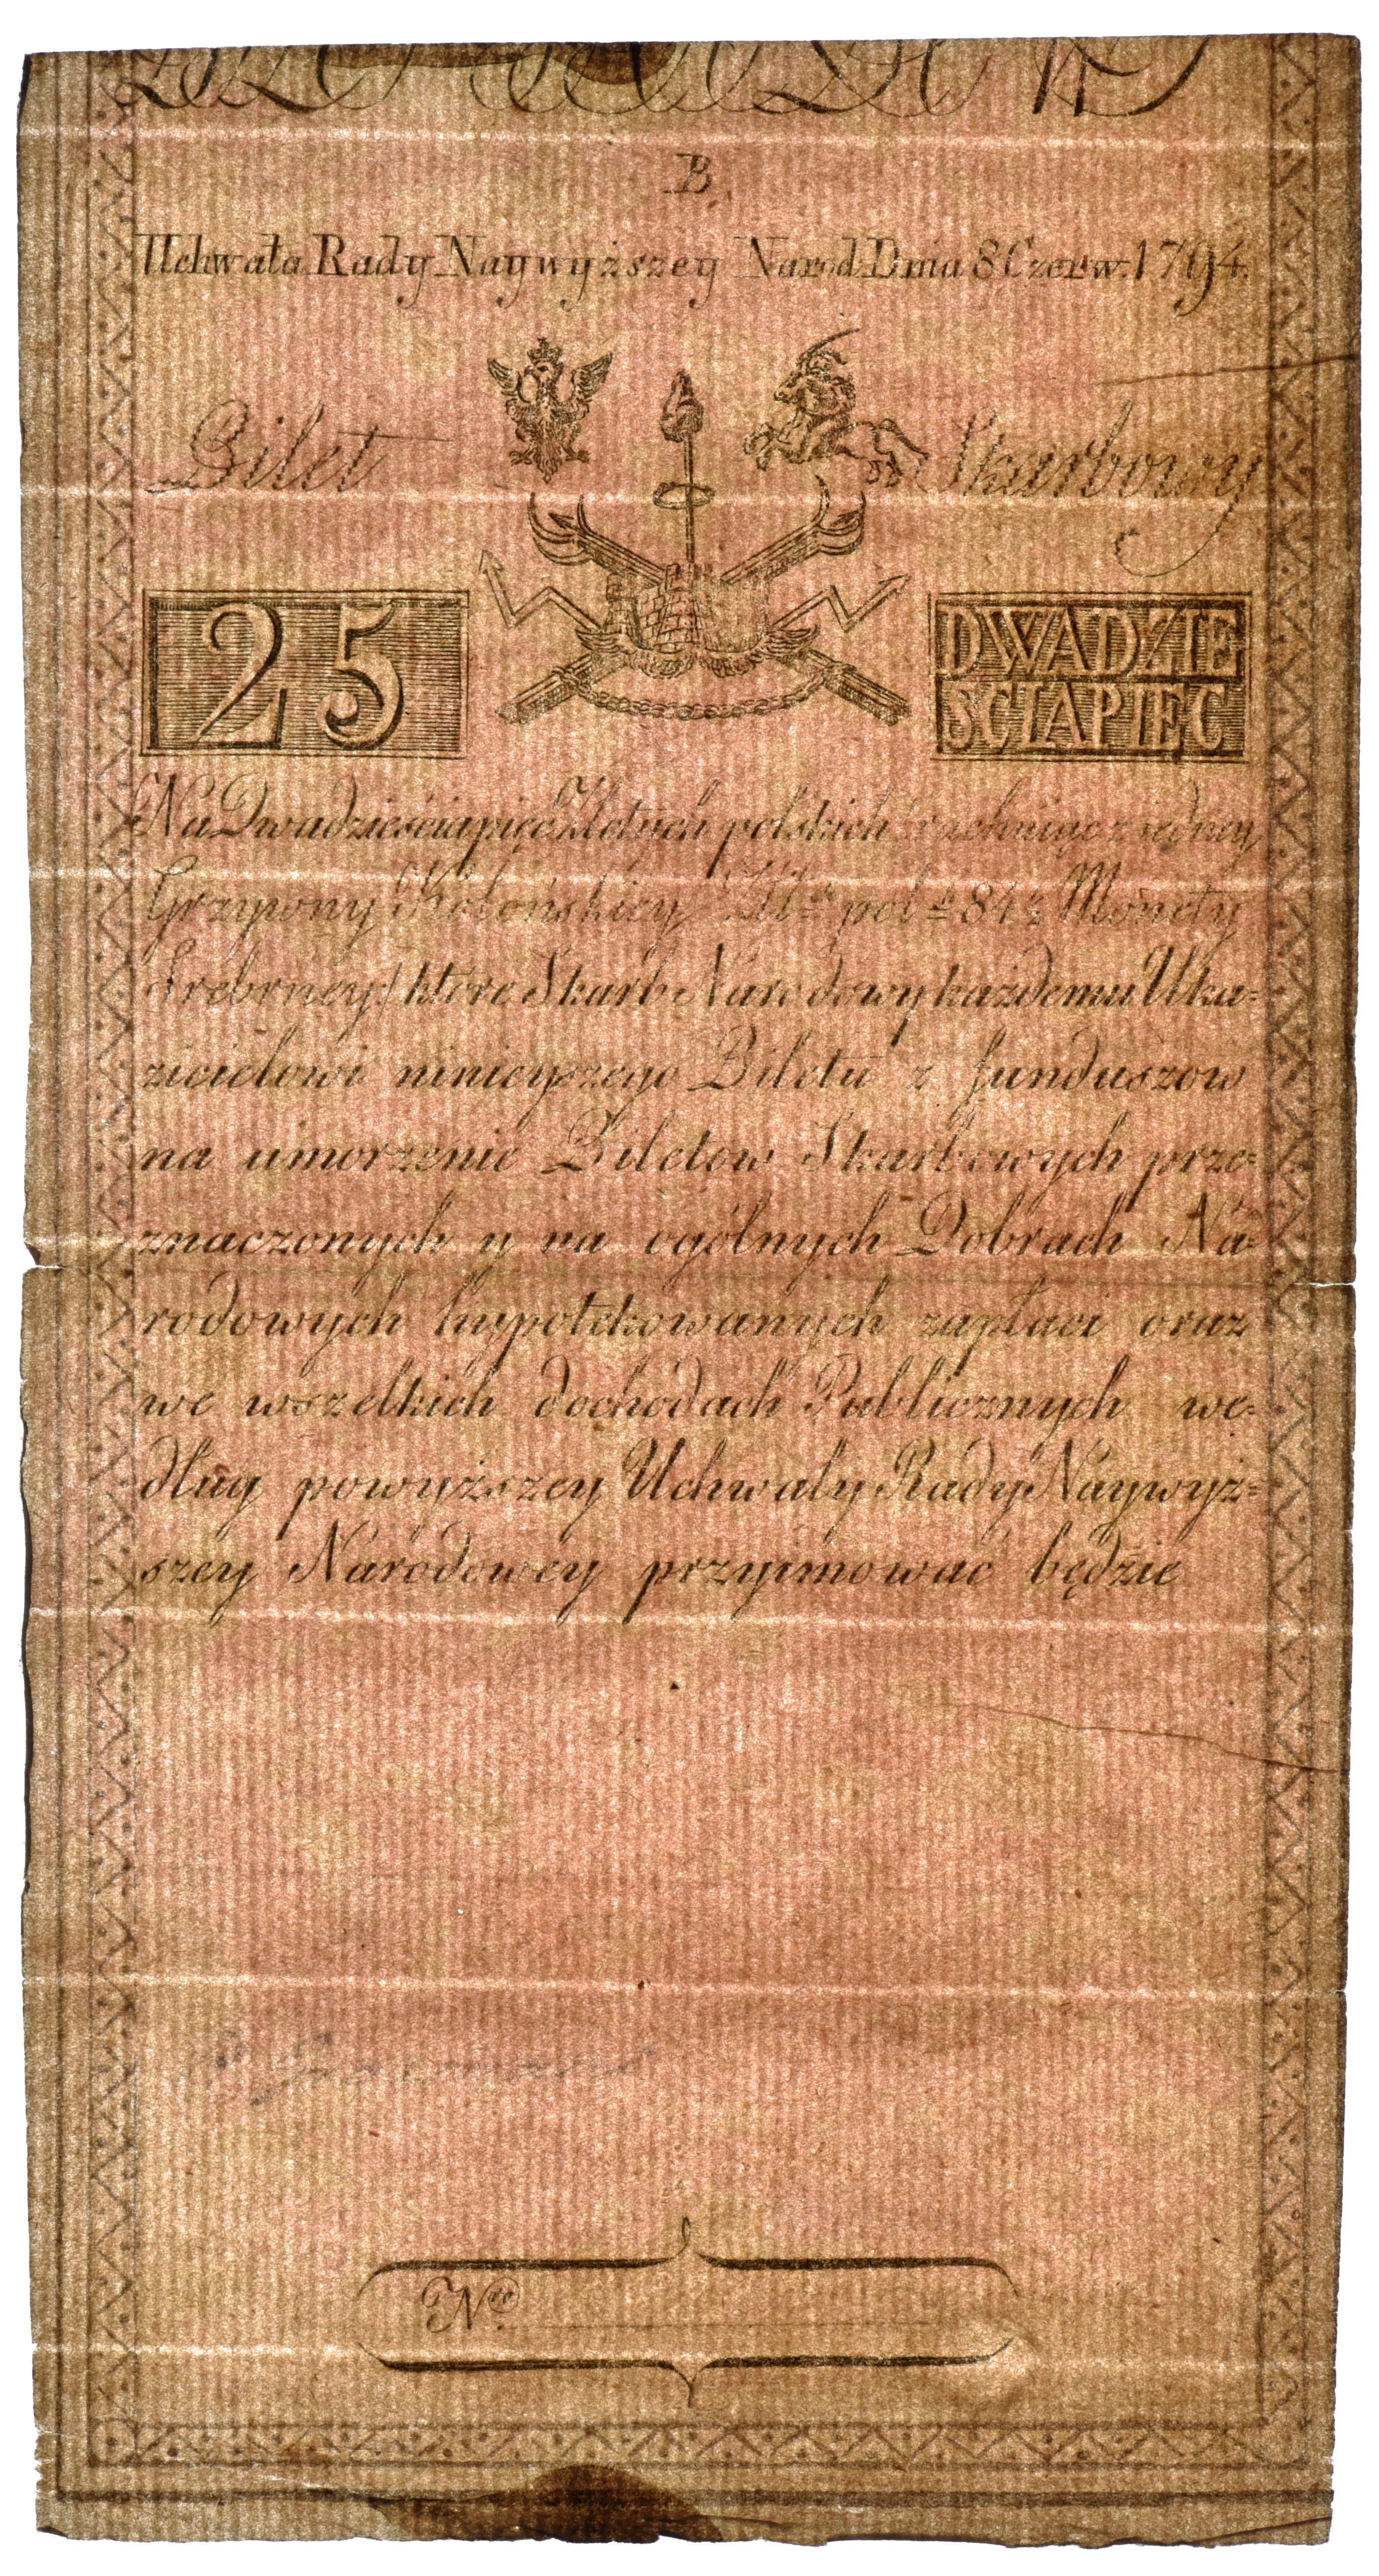 B.
Uchwała Rady Naywyższey Narod. Dnia 8 Czerw. 1794.
Bilet Skarbowy
25
DWADZIE
SCIAPIĘC
Na Dwadzieściapięć Złotych polskich rachuiąc z iedney
Grzywny Kolońskiey Złł: pol: 84½ Monety
Srebrney/ które Skarb Narodowy każdemu Uka=
zicielowi ninieyszego Biletu z funduszow
na umorzenie Biletow Skarbowych prze=
znaczonych y na ogólnych Dobrach Na=
rodowych hypotekowanych zapłaci oraz
we wszelkich dochodach Publicznych we=
dług powyższey Uchwały Rady Naywyż=
szey Narodowey przyimować będzie
Nro